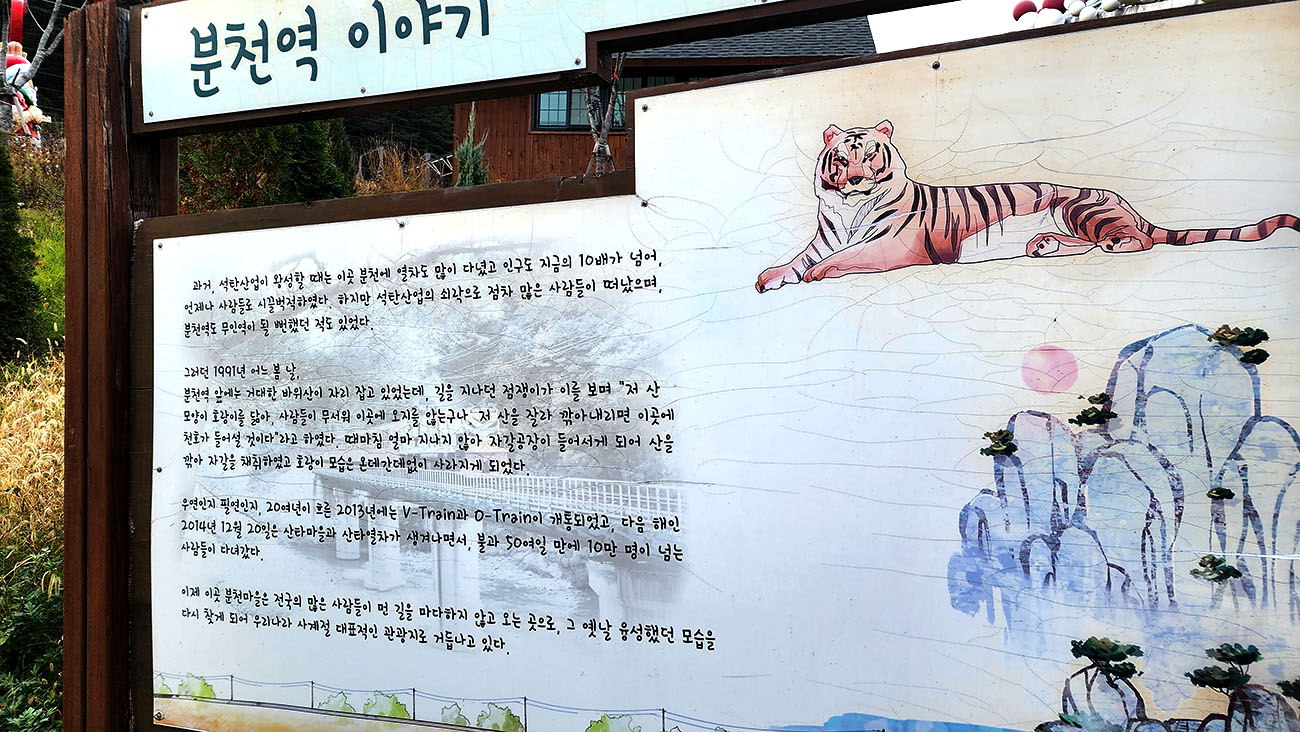 분천역 이야기
과거, 석탄산업이 왕성할 때는 이곳 분천에 열차도 많이 다녔고 인구도 지금의 10배가 넘어,
언제나 사람들로 시끌벅적하였다. 하지만 석탄산업의 쇠락으로 점차 많은 사람들이 떠났으며,
분천역도 무인역이 될 뻔했던 적도 있었다.
그러던 1991년 어느 봄 날,
분천역 앞에는 거대한 바위산이 자리 잡고 있었는데, 길을 지나던 점쟁이가 이를 보며 "저 산
모양이 호랑이를 닮아, 사람들이 무서워 이곳에 오지를 않는구나. 저 산을 잘라 깎아내리면 이곳에
천호가 들어설 것이다"라고 하였다. 때마침 얼마 지나지 않아 자갈공장이 들어서게 되어 산을
깎아 자갈을 채취하였고 호랑이 모습은 온데간데없이 사라지게 되었다.
우연인지 필연인지, 20여년이 흐른 2013년에는 V-Train과 O-Train이 개통되었고, 다음 해인
2014년 12월 20일은 산타마을과 산타열차가 생겨나면서, 불과 50여일 만에 10만 명이 넘는
사람들이 다녀갔다.
이제 이곳 분천마을은 전국의 많은 사람들이 먼 길을 마다하지 않고 오는 곳으로, 그 옛날 융성했던 모습을
다시 찾게 되어 우리나라 사계절 대표적인 관광지로 거듭나고 있다.